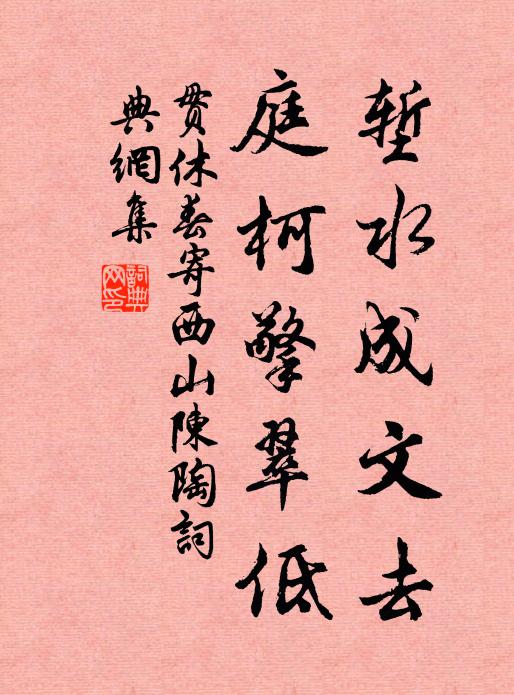 塹水成文去
庭柯擎翠低
貫休春寄西山陳陶詞
典網集
詞典網印